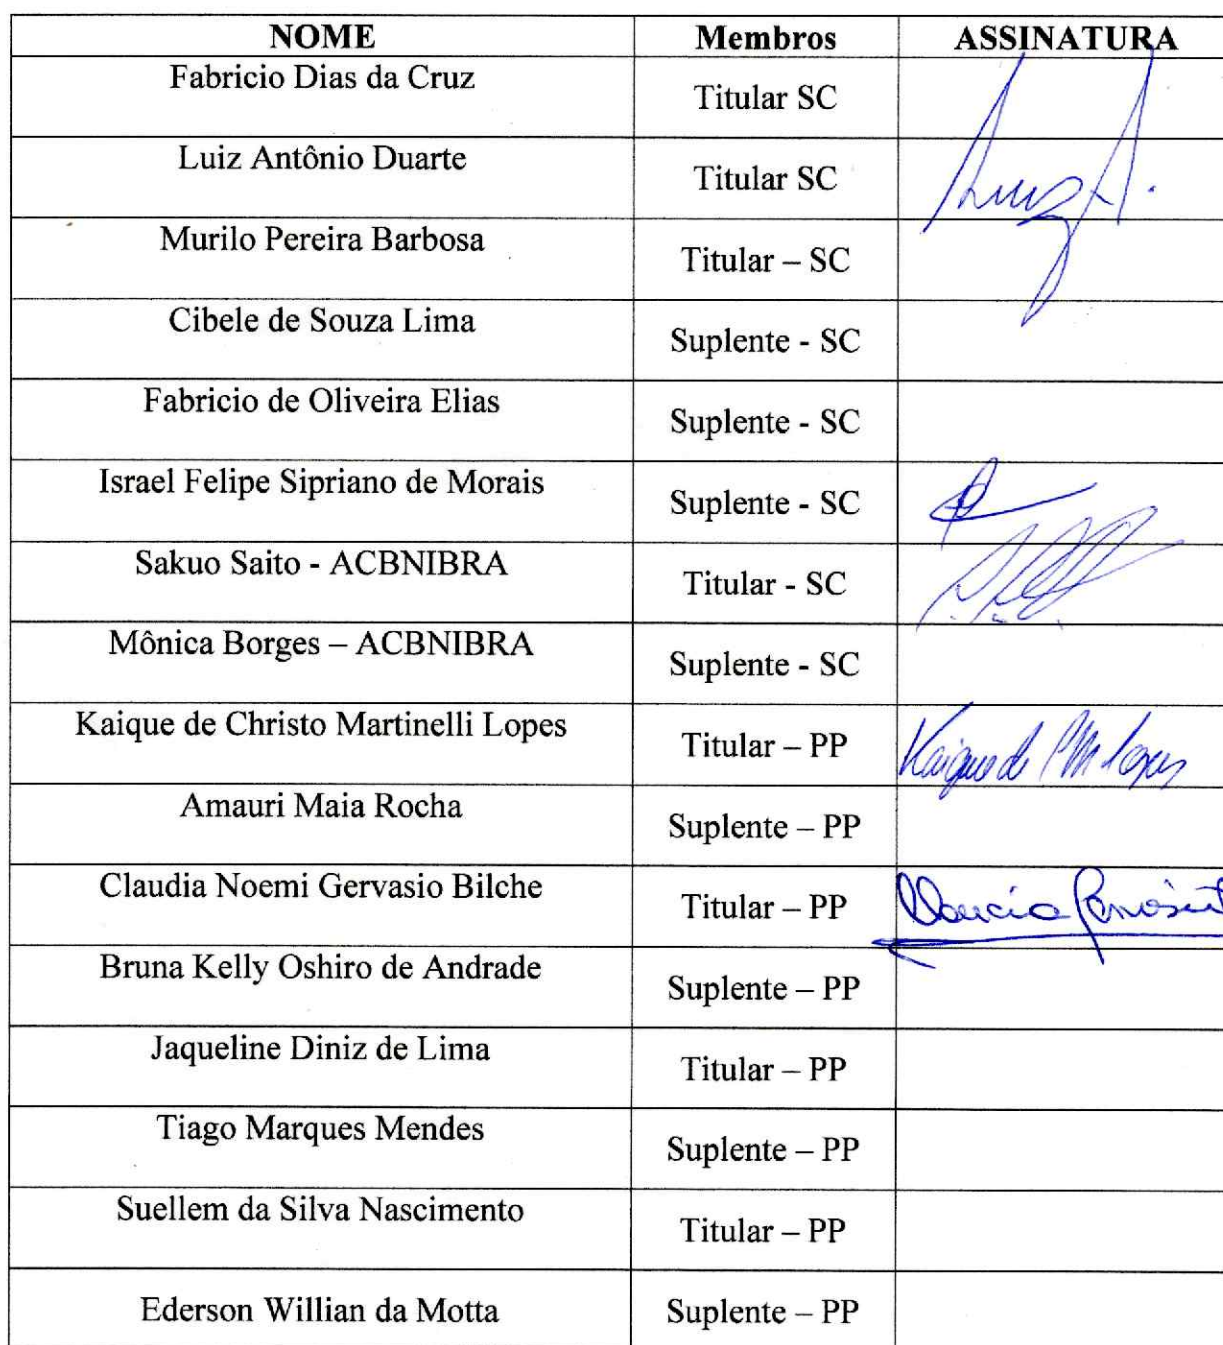 NOME Membros ASSINATURA
Fabricio Dias da Cruz Titular SC
Luiz Antônio Duarte Titular SC Luiz A.
Murilo Pereira Barbosa Titular – SC
Cibele de Souza Lima Suplente - SC
Fabricio de Oliveira Elias Suplente - SC
Israel Felipe Sipriano de Morais Suplente - SC
Sakuo Saito - ACBNIBRA Titular - SC
Mônica Borges – ACBNIBRA Suplente - SC
Kaique de Christo Martinelli Lopes Titular – PP Kaique de C M Lopes
Amauri Maia Rocha Suplente – PP
Claudia Noemi Gervasio Bilche Titular – PP
Bruna Kelly Oshiro de Andrade Suplente – PP
Jaqueline Diniz de Lima Titular – PP
Tiago Marques Mendes Suplente – PP
Suellem da Silva Nascimento Titular – PP
Ederson Willian da Motta Suplente – PP